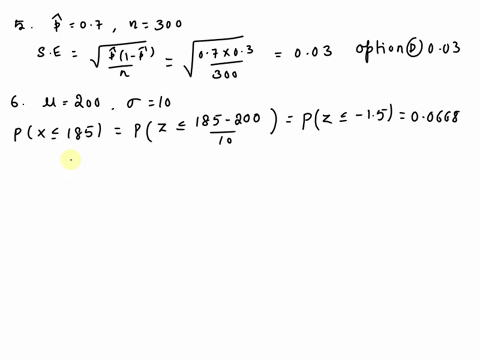 5. p̂ = 0.7 , n = 300
S.E = √(p̂(1-p̂)/n) = √(0.7×0.3/300) = 0.03 option Ⓓ 0.03
6. μ = 200 , σ = 10
P(x ≤ 185) = P(z ≤ (185-200)/10) = P(z ≤ -1.5) = 0.0668